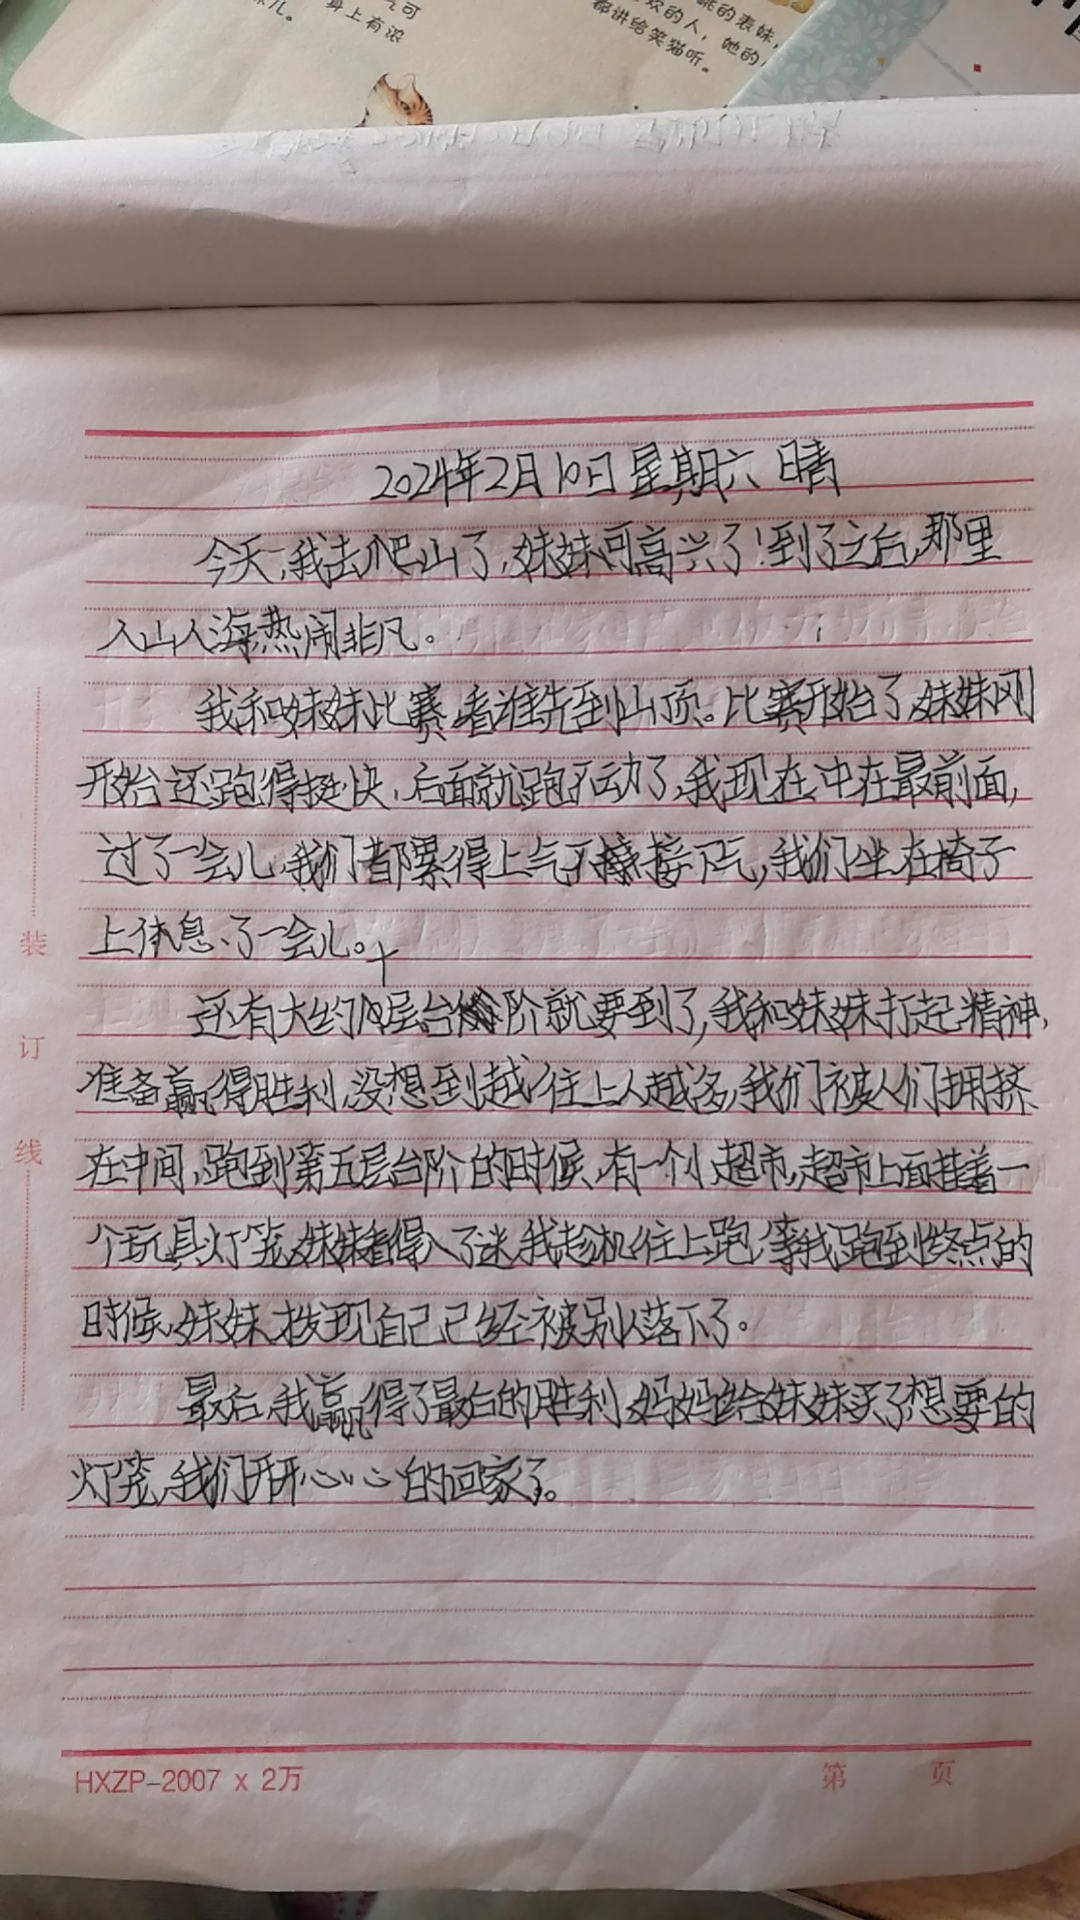 气可
身上有浓
味儿。
欢的人，她的
都讲给笑猫听。
的表妹，
2024年2月10日 星期六 晴
今天,我去爬山了,妹妹可高兴了!到了之后,那里
人山人海,热闹非凡。
我和妹妹比赛,看谁先到山顶。比赛开始了,妹妹刚
开始还跑得挺快,后面就跑不动了,我现在冲在最前面,
过了一会儿,我们都累得上气不接下气,我们坐在椅子
上休息了一会儿。
还有大约 层台阶就要到了,我和妹妹打起精神,
准备赢得胜利,没想到越往上人越多,我们被人们拥挤
在中间,跑到第五层台阶的时候,有一个小超市,超市上面挂着一
个玩具灯笼,妹妹看得入了迷,我趁机往上跑,等我跑到终点的
时候,妹妹才发现自己已经被别人落下了。
最后,我赢得了最后的胜利,妈妈给妹妹买了想要的
灯笼,我们开开心心的回家了。
装
订
线
HXZP-2007 x 2万
第 页